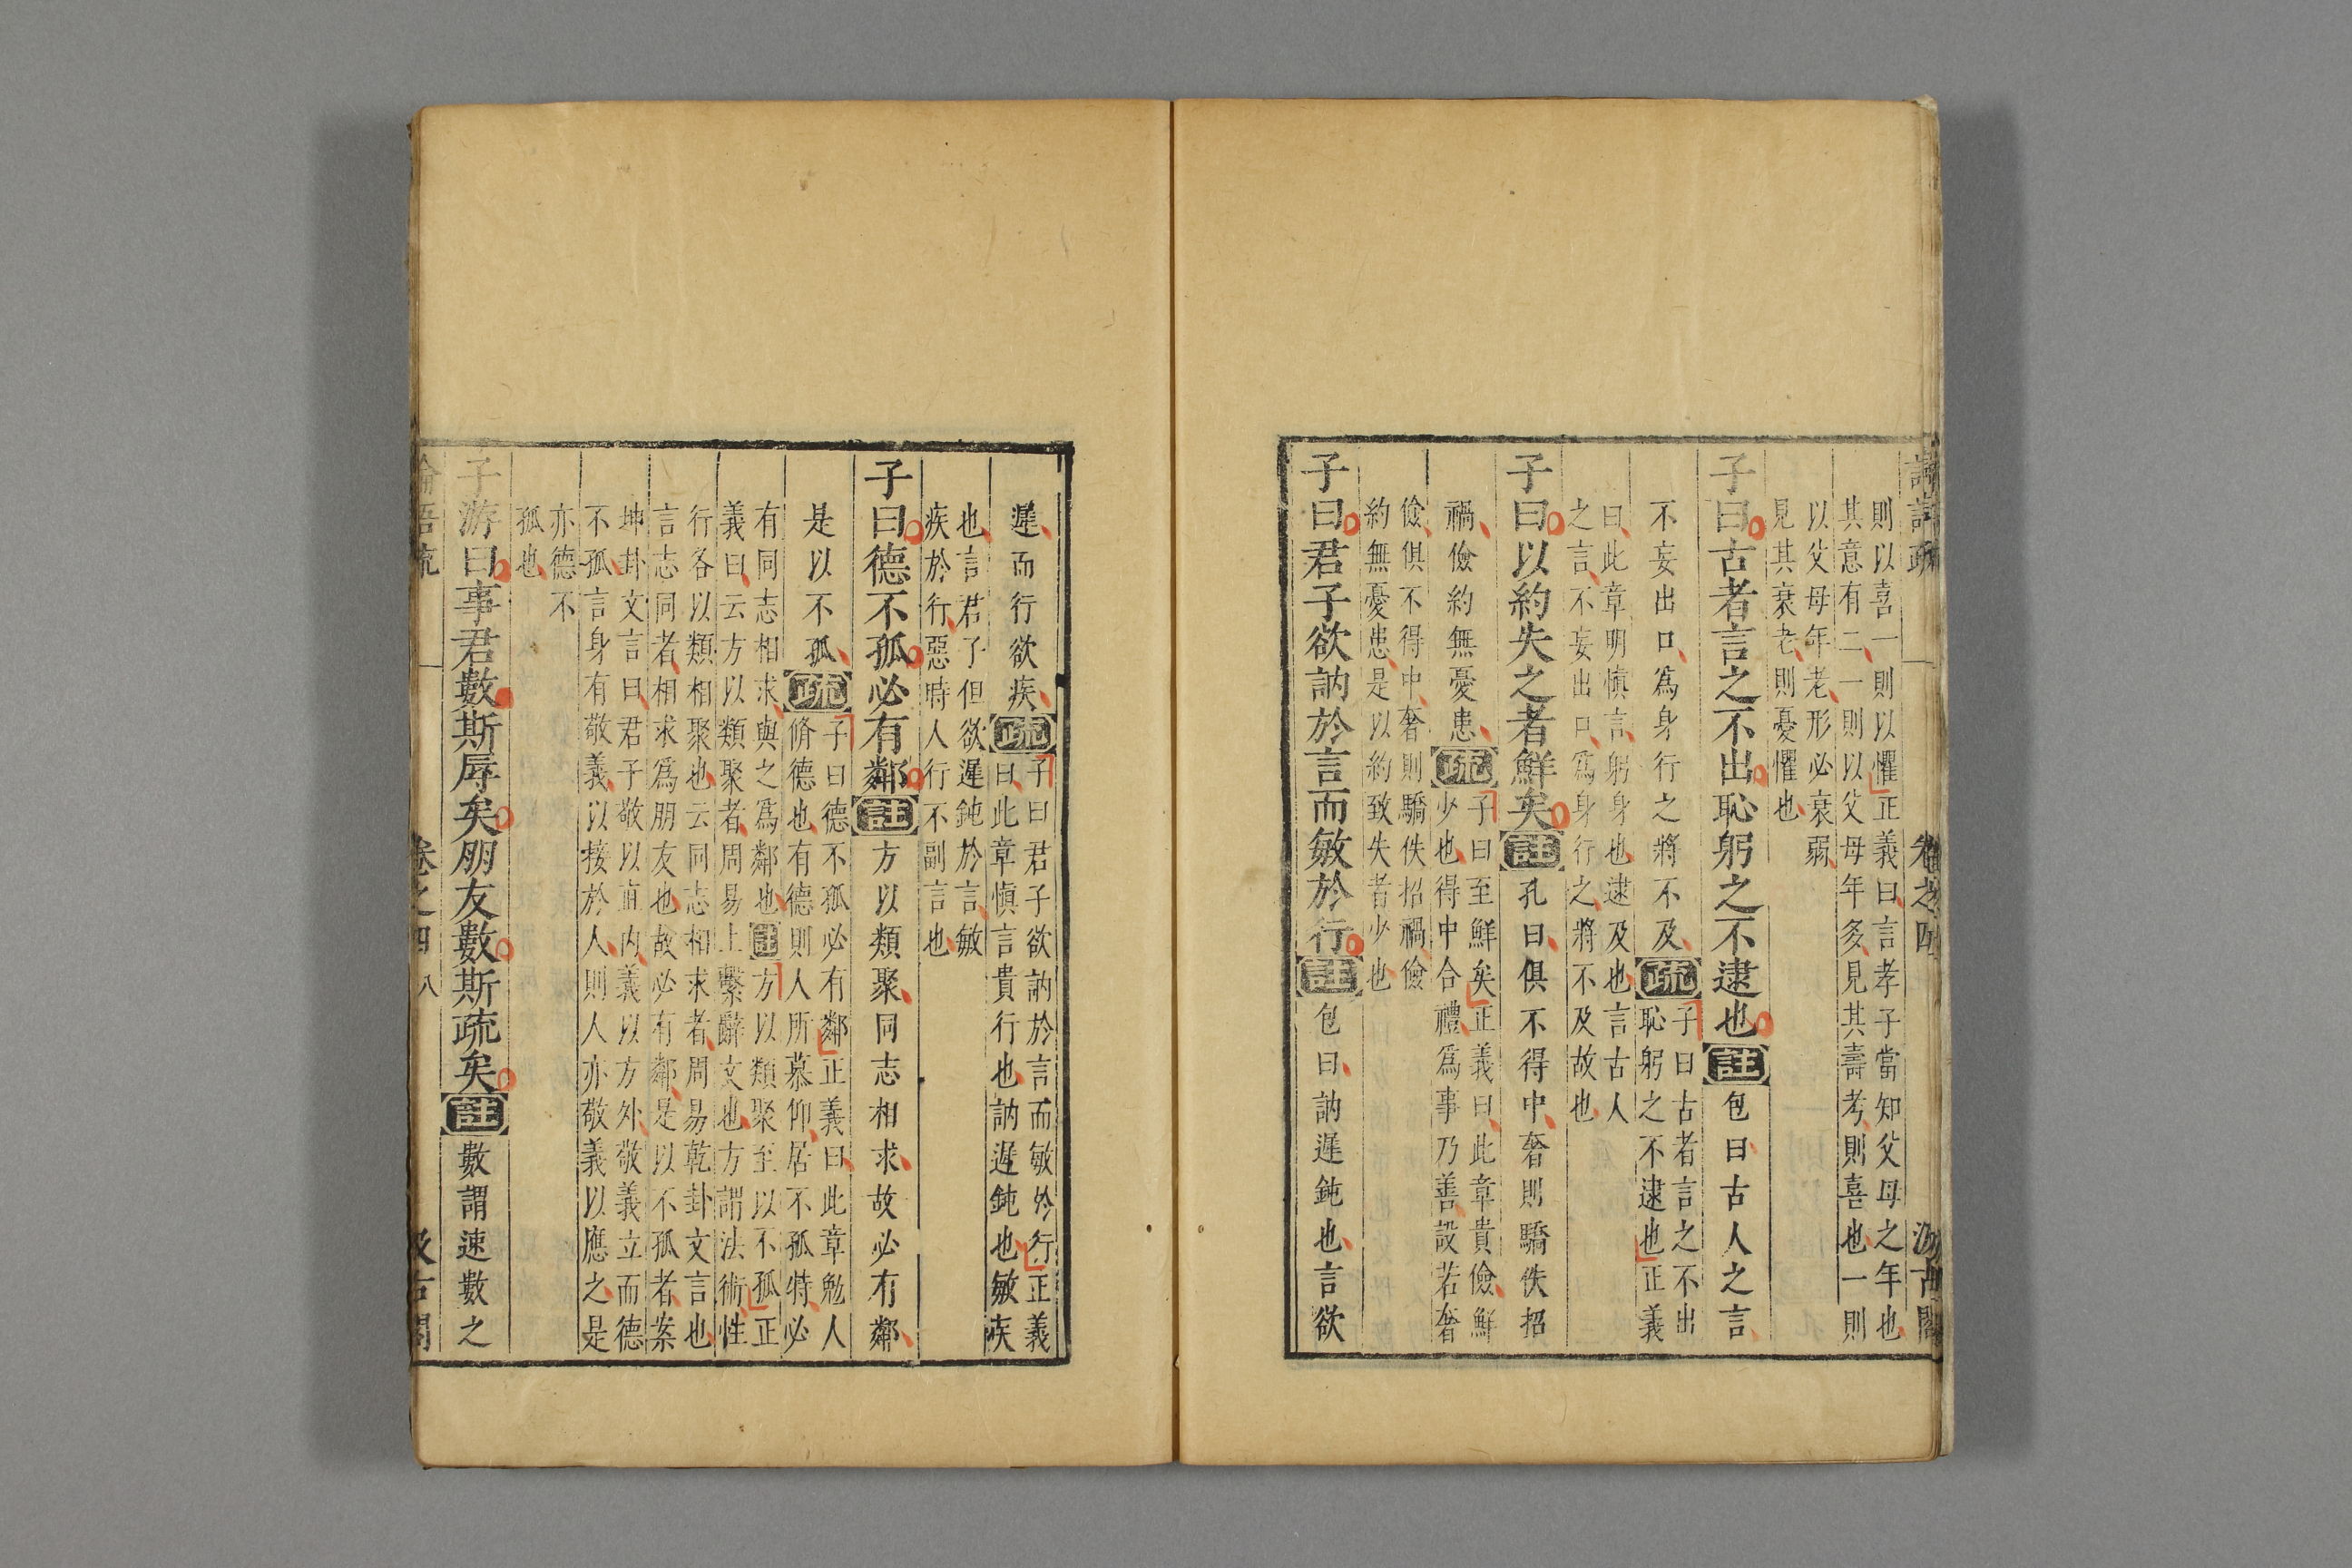 則以喜一則以懼正義曰言孝子當知父母之年也
其意有二一則以父母年多見其壽考則喜也一則
以父母年老形必衰弱
見其衰老則憂懼也
子曰古者言之不出恥躬之不逮也註包曰古人之言
不妄出口爲身行之將不及疏子曰古者言之不出
恥躬之不逮也正義
曰此章明慎言躬身也逮及也言古人
之言不妄出口爲身行之將不及故也
子曰以約失之者鮮矣註孔曰俱不得中奢則驕佚招
禍儉約無憂患疏子曰至鮮矣正義曰此章貴儉鮮
少也得中合禮爲事乃善設若奢
儉俱不得中奢則驕佚招禍儉
約無憂患是以約致失者少也
子曰君子欲訥於言而敏於行註包曰訥遲鈍也言欲
遲而行欲疾疏子曰君子欲訥於言而敏於行正義
曰此章慎言貴行也訥遲鈍也敏疾
也言君子但欲遲鈍於言敏
疾於行惡時人行不副言也
子曰德不孤必有鄰註方以類聚同志相求故必有鄰
是以不孤疏子曰德不孤必有鄰正義曰此章勉人
脩德也有德則人所慕仰居不孤特必
有同志相求與之爲鄰也註方以類聚至以不孤正
義曰云方以類聚者周易上繫辭文也方謂法術性
行各以類相聚也云同志相求者周易乾卦文言也
言志同者相求爲朋友也故必有鄰是以不孤者案
坤卦文言曰君子敬以直内義以方外敬義立而德
不孤言身有敬義以接於人則人亦敬義以應之是
亦德不
孤也
子游曰事君數斯辱矣朋友數斯疏矣註數謂速數之
卷之四
八